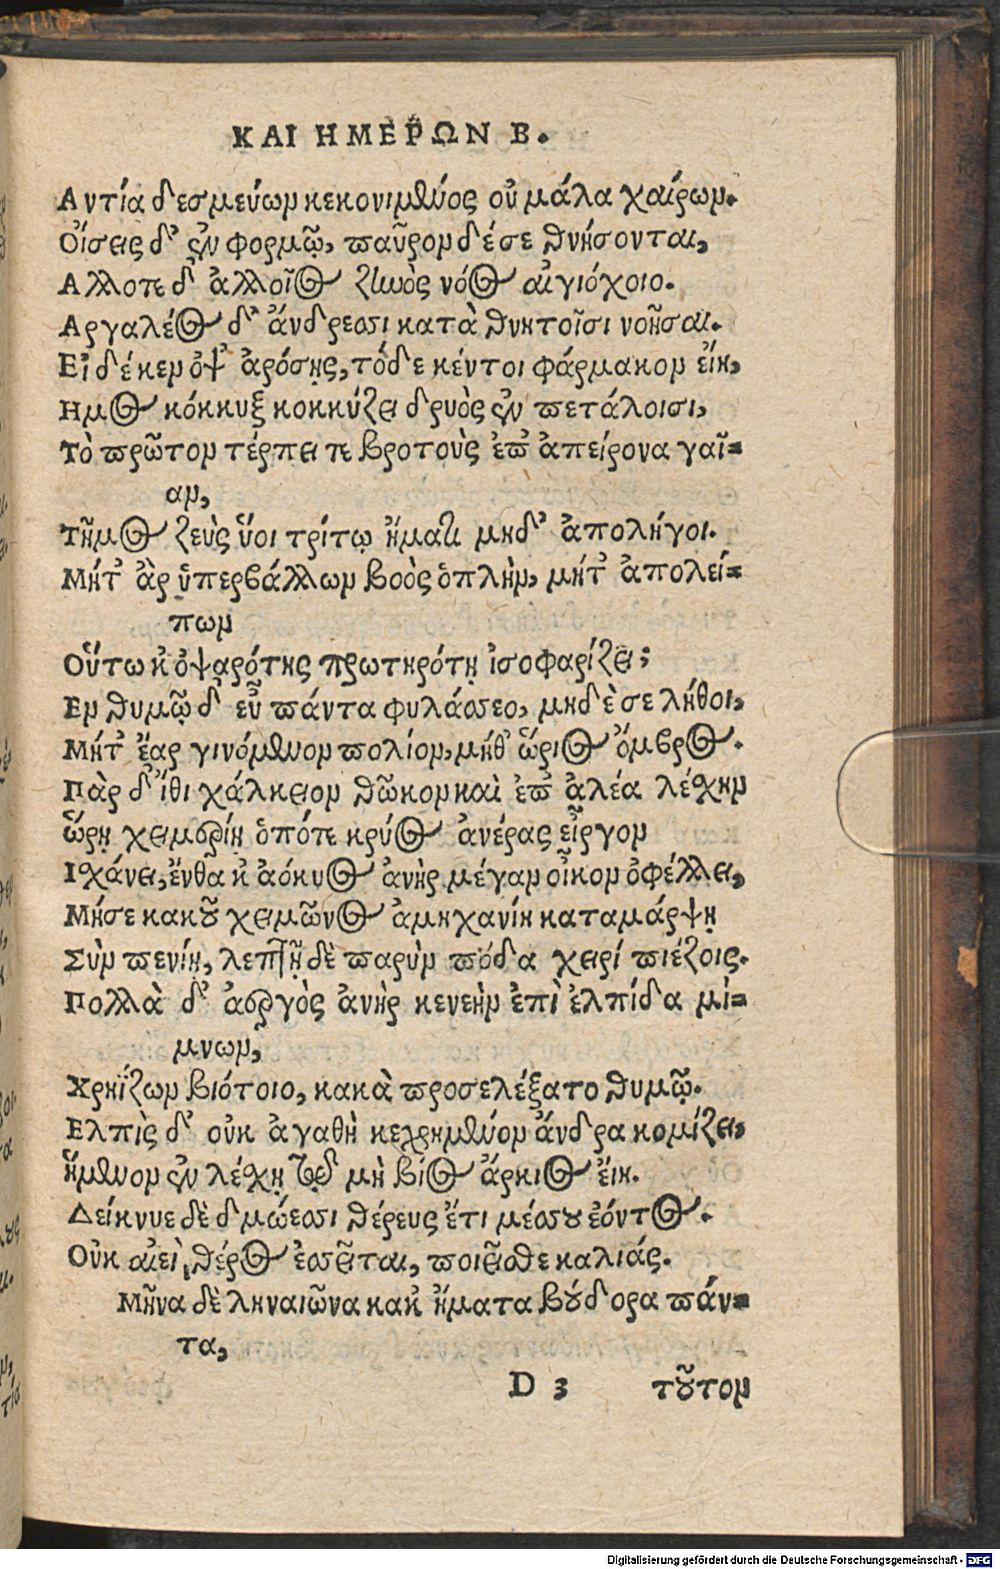 ΚΑΙ ΗΜΕΡΩΝ Β.
Αντία δεσμεύων κεκονιμένος οὐ μάλα χαίρων.
Οἴσεις δ' ἐν φορμῷ, παῦροι δέ σε θνήσονται,
Αλλοτε δ' ἀλλοῖος ζηνὸς νόος αἰγιόχοιο.
Αργαλέος δ' ἄνδρεσσι κατὰ θνητοῖσι νοῆσαι.
Εἰ δέ κεν ὀψ' ἀρόσῃς, τόδε κέντοι φάρμακον εἴη,
Ημος κόκκυξ κοκκύζει δρυὸς ἐν πετάλοισι,
Τὸ πρῶτον τέρπει τε βροτοὺς ἐπ' ἀπείρονα γαῖ=
αν,
Τῆμος ζεὺς ὕοι τρίτῳ ἤματι μηδ' ἀπολήγοι.
Μήτ' ἂρ ὑπερβάλλων βοὸς ὁπλὴν, μήτ' ἀπολεί=
πων
Οὕτω κ' ὀψαρότης πρωτηρότῃ ἰσοφαρίζει;
Εν θυμῷ δ' εὖ πάντα φυλάσσεο, μηδὲ σε λήθοι,
Μήτ' ἔαρ γινόμενον πολίον, μήθ' ὥριος ὄμβρος.
Πὰρ δ' ἴθι χάλκειον θῶκον καὶ ἐπ' ἀλέα λέσχην
ὥρῃ χειμερίῃ ὁπότε κρύος ἀνέρας εἶργον
Ισχάνει, ἔνθα κ' ἄοκνος ἀνὴρ μέγαν οἶκον ὀφέλλει,
Μήσε κακοῦ χειμῶνος ἀμηχανίη καταμάρψῃ
Σὺν πενίῃ, λεπτῇ δὲ παχὺν πόδα χερί πιέζοις.
Πολλὰ δ' ἀεργὸς ἀνὴρ κενεὴν ἐπὶ ἐλπίδα μί=
μνων,
Χρηΐζων βιότοιο, κακὰ προσελέξατο θυμῷ.
Ελπὶς δ' οὐκ ἀγαθὴ κεχρημένον ἄνδρα κομίζει,
ἥμενον ἐν λέσχῃ τῷδ μὴ βίος ἄρκιος εἴη.
Δείκνυε δὲ δμώεσσι θέρευς ἔτι μέσσου ἐόντος.
Οὐκ αἰεὶ θέρος ἐσσεῖται, ποιεῖσθε καλιάς.
Μῆνα δὲ ληναιῶνα κακ' ἤματα βούδορα πάν=
τα,
D 3 τοῦτον
Digitalisierung gefördert durch die Deutsche Forschungsgemeinschaft - DFG